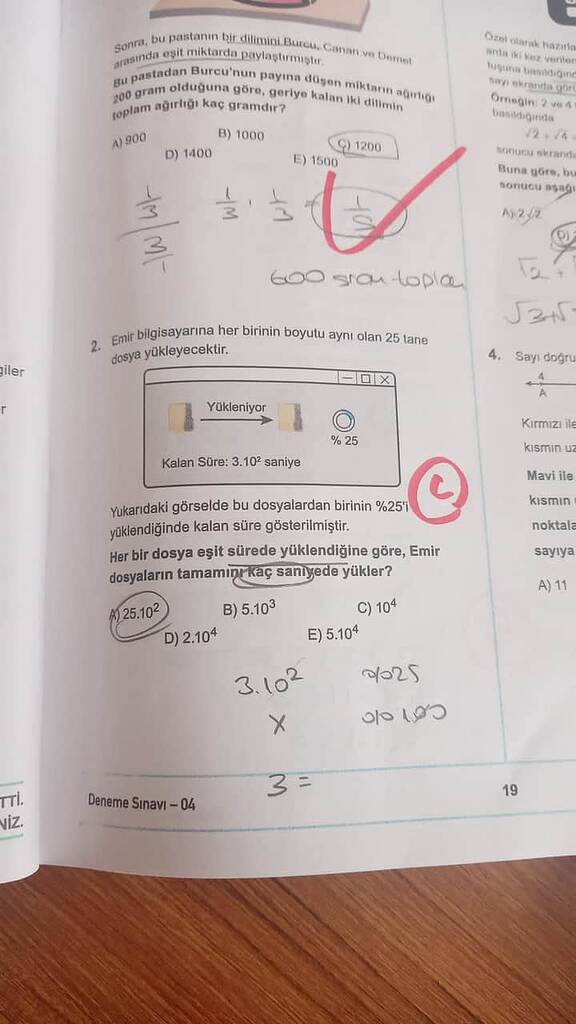 Sonra, bu pastanın bir dilimini Burcu, Canan ve Demet
arasında eşit miktarda paylaştırmıştır.
Bu pastadan Burcu'nun payına düşen miktarın ağırlığı
200 gram olduğuna göre, geriye kalan iki dilimin
toplam ağırlığı kaç gramdır?
A) 900 B) 1000 C) 1200
D) 1400 E) 1500
1/3 / 3/1 1/3 · 1/3 = 1/9
600 gram toplam
2. Emir bilgisayarına her birinin boyutu aynı olan 25 tane
dosya yükleyecektir.
Yükleniyor
% 25
Kalan Süre: 3.10² saniye
C
Yukarıdaki görselde bu dosyalardan birinin %25'i
yüklendiğinde kalan süre gösterilmiştir.
Her bir dosya eşit sürede yüklendiğine göre, Emir
dosyaların tamamını kaç saniyede yükler?
A) 25.10² B) 5.10³ C) 10⁴
D) 2.10⁴ E) 5.10⁴
3.10² %25
x %100
3 =
Deneme Sınavı – 04
19
giler
r
TTİ.
NİZ.
Özel olarak
arda iki kez
Örneğin: 2 ve 4
basıldığında
√2 + √4
sonucu
Buna göre, bu
sonucu
A) 2√2
√2 +
√3 + √
4. Sayı doğru
4
A
Kırmızı ile
kısmın
Mavi ile
kısmın
sayıya
A) 11